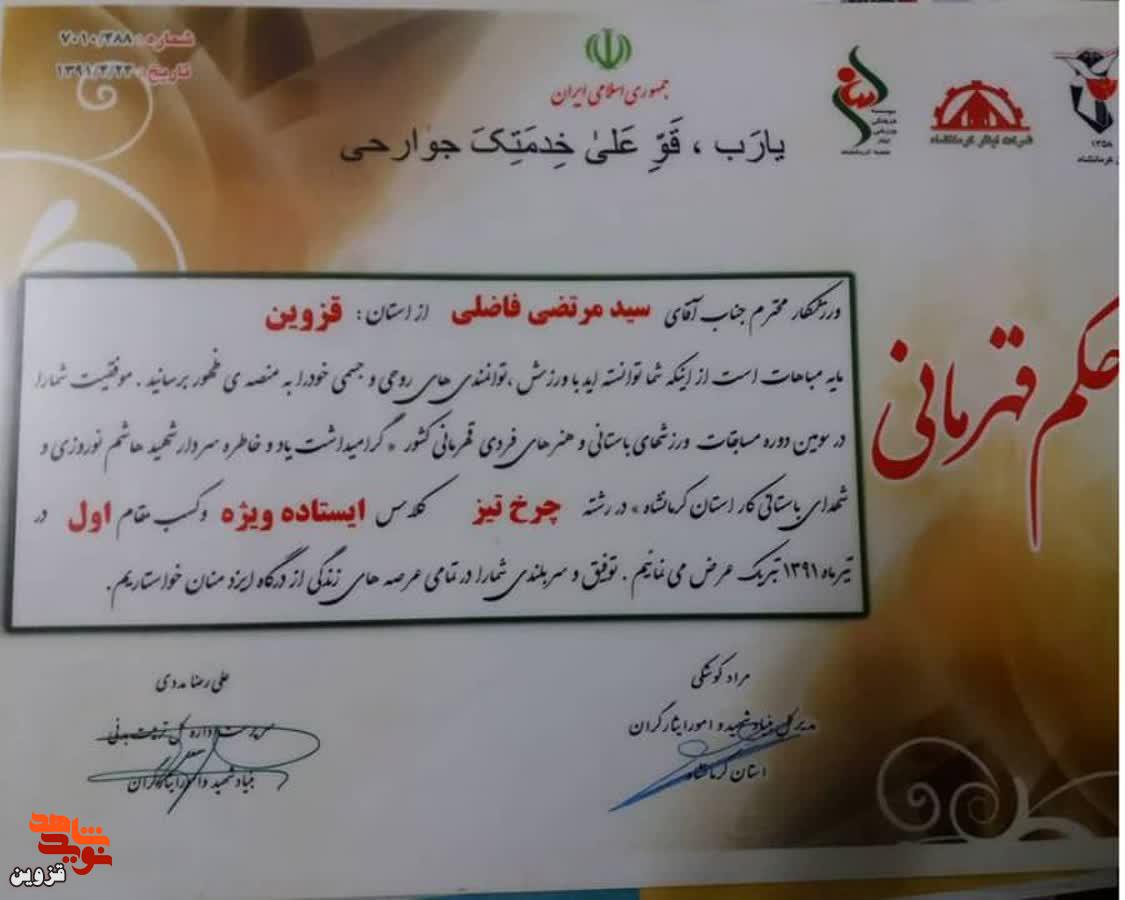 شماره: ۷۰۱۰/۳۸۸
تاریخ: ۱۳۹۱/۴/۲۳
جمهوری اسلامی ایران
یارَب ، قَوِّ عَلیٰ خِدمَتِکَ جوارحی
شرکت ایثار کرمانشاه
۱۳۵۸
کرمانشاه
حکم قهرمانی
ورزشکار محترم جناب آقای سید مرتضی فاضلی از استان : قزوین
مایه مباهات است از اینکه شما توانسته اید با ورزش ،توانمندی های روحی و جسمی خود را به منصه ی ظهور برسانید . موفقیت شما را
در سومین دوره مسابقات ورزشهای باستانی و هنرهای فردی قهرمانی کشور « گرامیداشت یاد و خاطره سردار شهید هاشم نوروزی و
شهدای باستانی کار استان کرمانشاه » در رشته چرخ تیز کلاس ایستاده ویژه و کسب مقام اول در
تیرماه ۱۳۹۱ تبریک عرض می نمائیم . توفیق و سربلندی شما را در تمامی عرصه های زندگی از درگاه ایزد منان خواستاریم.
مراد کوشکی
مدیر کل بنیاد شهید و امور ایثارگران
استان کرمانشاه
علی رضا مددی
اداره کل تربیت بدنی
بنیاد شهید و امور ایثارگران
نوید شاهد
قزوین